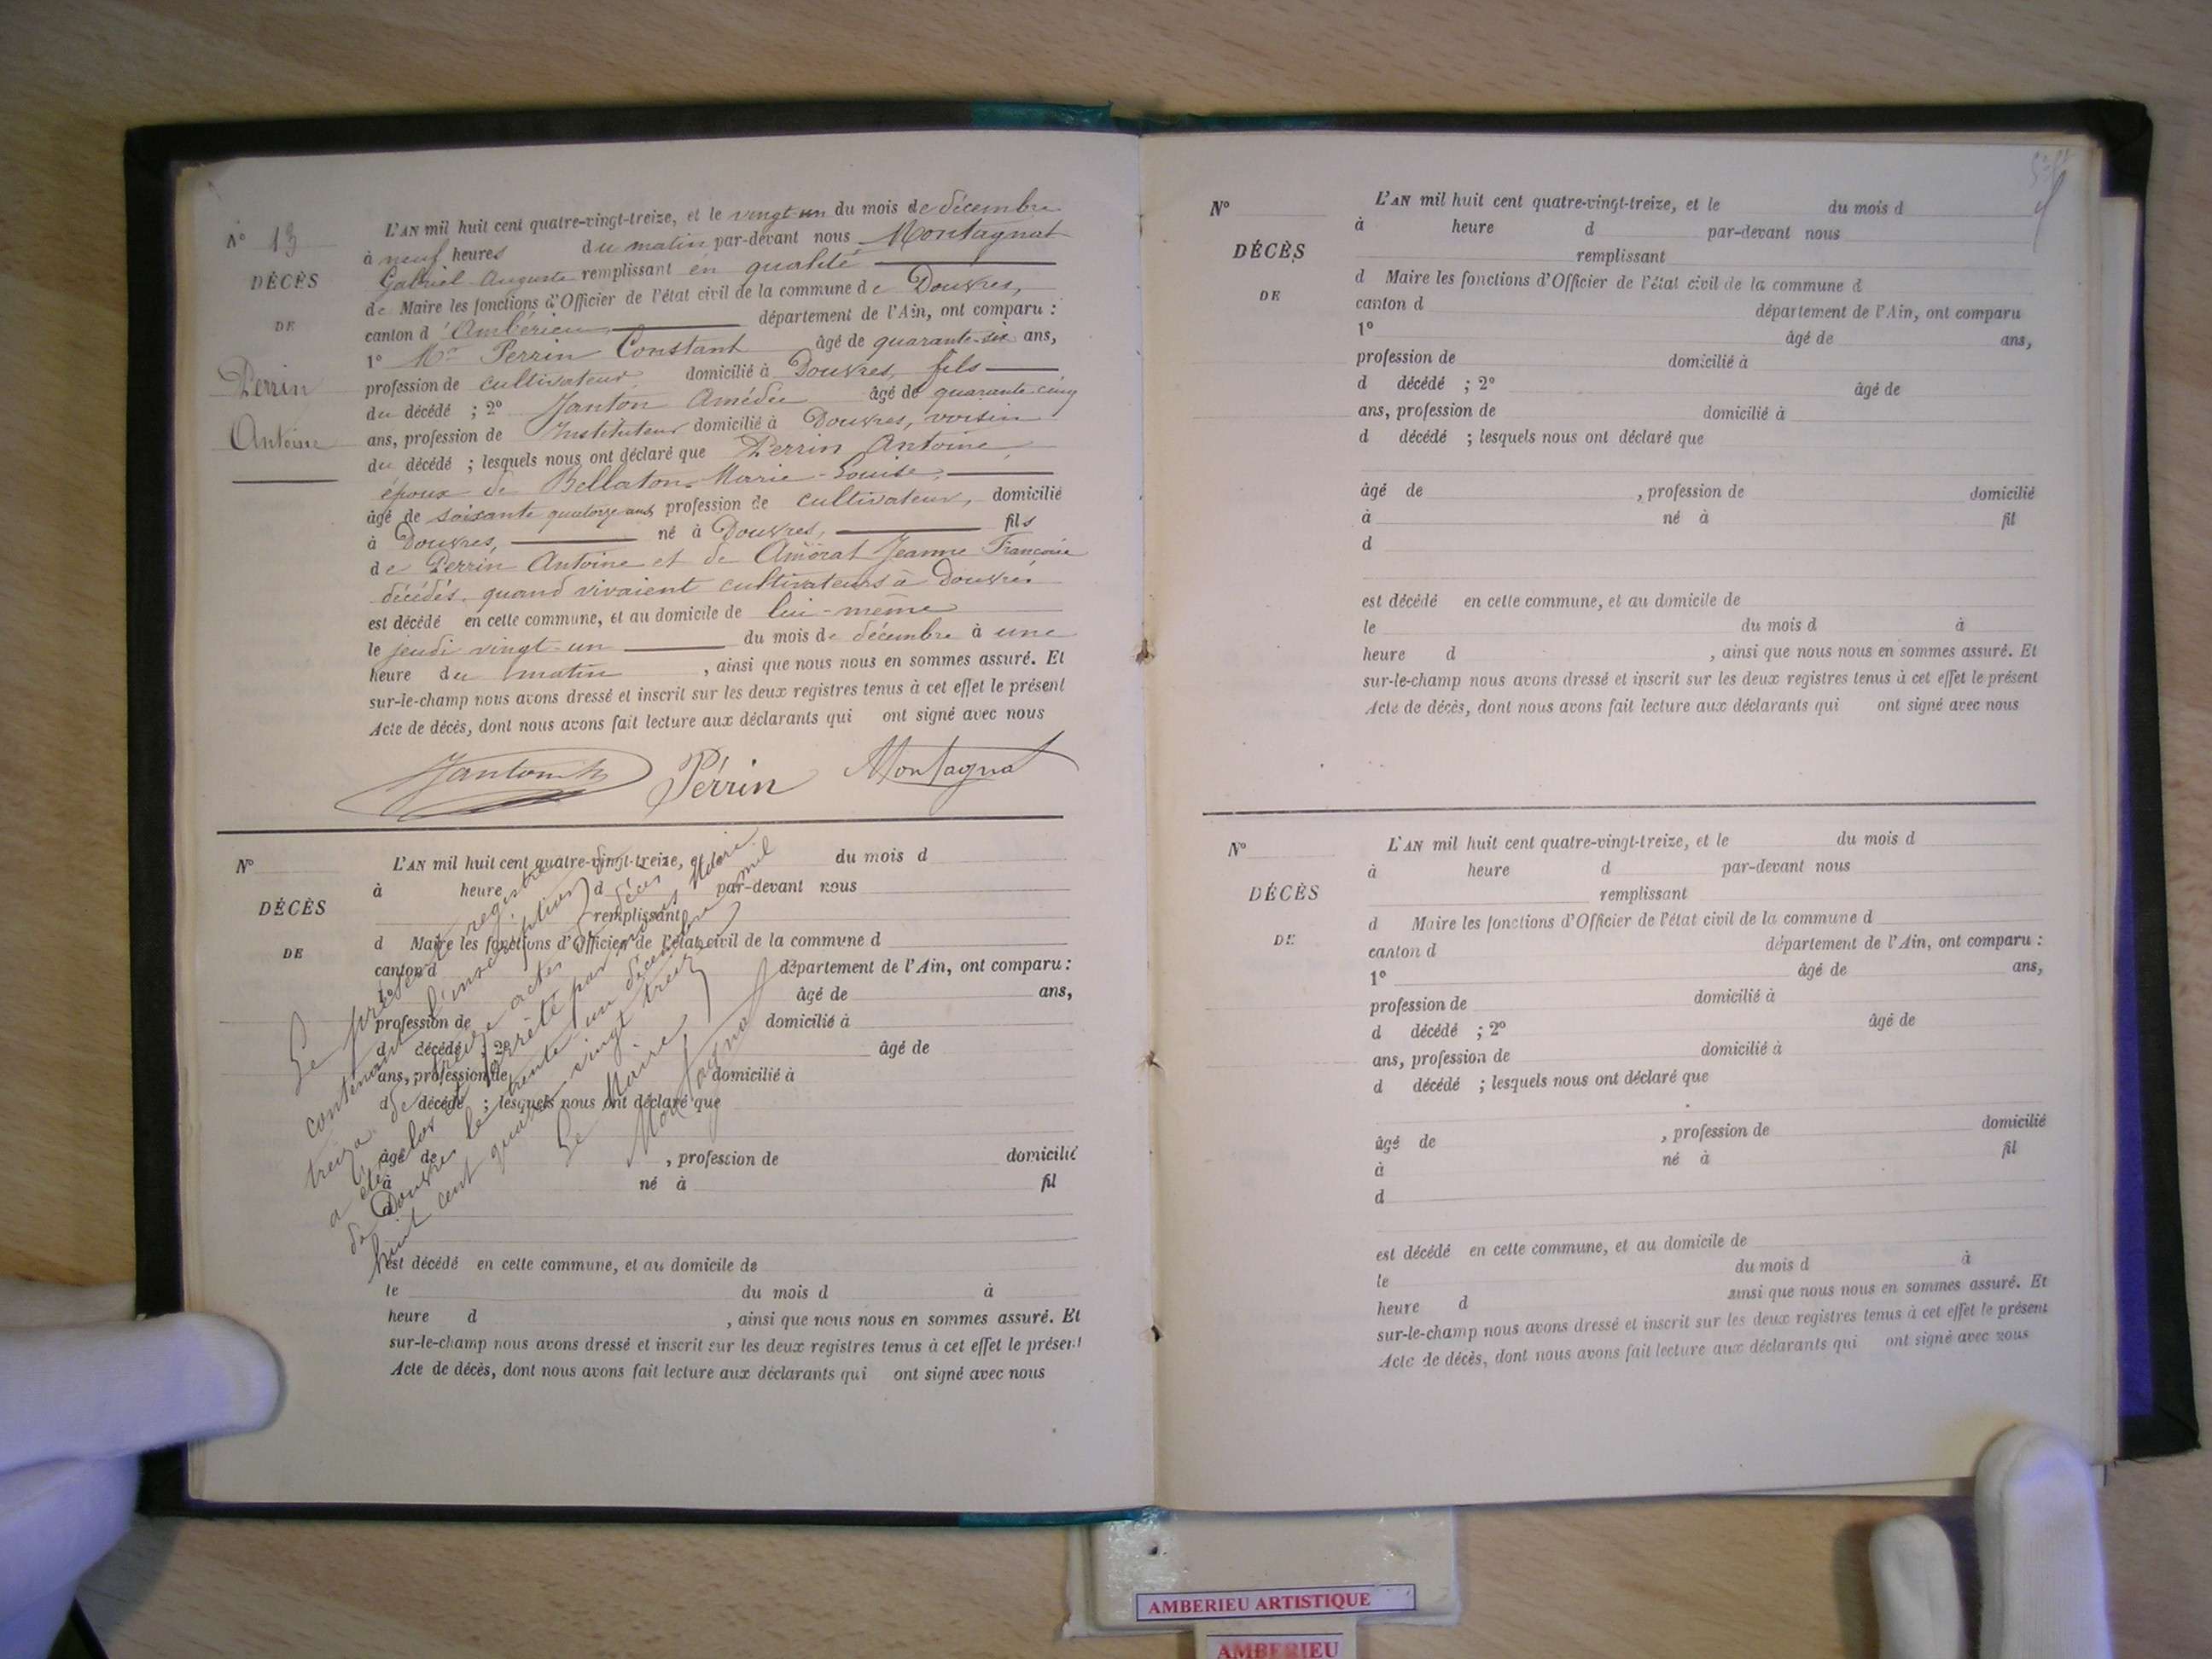 N° 13
DÉCÈS
DE
Perrin
Antoine
L'AN mil huit cent quatre-vingt-treize, et le vingt-un du mois de décembre
à neuf heures du matin par-devant nous Montagnat
Gabriel Auguste remplissant en qualité
de Maire les fonctions d'Officier de l'état civil de la commune de Douvres,
canton d'Ambérieu département de l'Ain, ont comparu :
1° Mr Perrin Constant âgé de quarante-six ans,
profession de cultivateur, domicilié à Douvres, fils
du décédé ; 2° Janton Amédée âgé de quarante-cinq
ans, profession de Instituteur domicilié à Douvres, voisin
du décédé ; lesquels nous ont déclaré que Perrin Antoine,
époux de Bellaton Marie-Louise,
âgé de soixante quatorze ans, profession de cultivateur, domicilié
à Douvres, né à Douvres, fils
de Perrin Antoine et de Amorat Jeanne Françoise
décédés. quand vivaient cultivateurs à Douvres
est décédé en cette commune, et au domicile de lui-même
le jeudi vingt-un du mois de décembre à une
heure du matin, ainsi que nous nous en sommes assuré. Et
sur-le-champ nous avons dressé et inscrit sur les deux registres tenus à cet effet le présent
Acte de décès, dont nous avons fait lecture aux déclarants qui ont signé avec nous
Janton Perrin Montagnat
N°
DÉCÈS
DE
L'AN mil huit cent quatre-vingt-treize, et le du mois d
à heure d par-devant nous
remplissant
d Maire les fonctions d'Officier de l'état civil de la commune d
canton d département de l'Ain, ont comparu :
1° âgé de ans,
profession de domicilié à
d décédé ; 2° âgé de
ans, profession de domicilié à
d décédé ; lesquels nous ont déclaré que
âgé de , profession de domicilié
à né à fil
d
est décédé en cette commune, et au domicile de
le du mois d à
heure d , ainsi que nous nous en sommes assuré. Et
sur-le-champ nous avons dressé et inscrit sur les deux registres tenus à cet effet le présent
Acte de décès, dont nous avons fait lecture aux déclarants qui ont signé avec nous
Le présent registre
contenant l'inscription
treize actes de décès
a été clos et arrêté par nous Maire
de Douvres le trente un décembre mil
huit cent quatre vingt treize
Le Maire,
Montagnat
N°
DÉCÈS
DE
L'AN mil huit cent quatre-vingt-treize, et le du mois d
à heure d par-devant nous
remplissant
d Maire les fonctions d'Officier de l'état civil de la commune d
canton d département de l'Ain, ont comparu
1° âgé de ans,
profession de domicilié à
d décédé ; 2° âgé de
ans, profession de domicilié à
d décédé ; lesquels nous ont déclaré que
âgé de , profession de domicilié
à né à fil
d
est décédé en cette commune, et au domicile de
le du mois d à
heure d , ainsi que nous nous en sommes assuré. Et
sur-le-champ nous avons dressé et inscrit sur les deux registres tenus à cet effet le présent
Acte de décès, dont nous avons fait lecture aux déclarants qui ont signé avec nous
N°
DÉCÈS
DE
L'AN mil huit cent quatre-vingt-treize, et le du mois d
à heure d par-devant nous
remplissant
d Maire les fonctions d'Officier de l'état civil de la commune d
canton d département de l'Ain, ont comparu :
1° âgé de ans,
profession de domicilié à
d décédé ; 2° âgé de
ans, profession de domicilié à
d décédé ; lesquels nous ont déclaré que
âgé de , profession de domicilié
à né à fil
d
est décédé en cette commune, et au domicile de
le du mois d à
heure d ainsi que nous nous en sommes assuré. Et
sur-le-champ nous avons dressé et inscrit sur les deux registres tenus à cet effet le présent
Acte de décès, dont nous avons fait lecture aux déclarants qui ont signé avec nous
AMBERIEU ARTISTIQUE
AMBERIEU